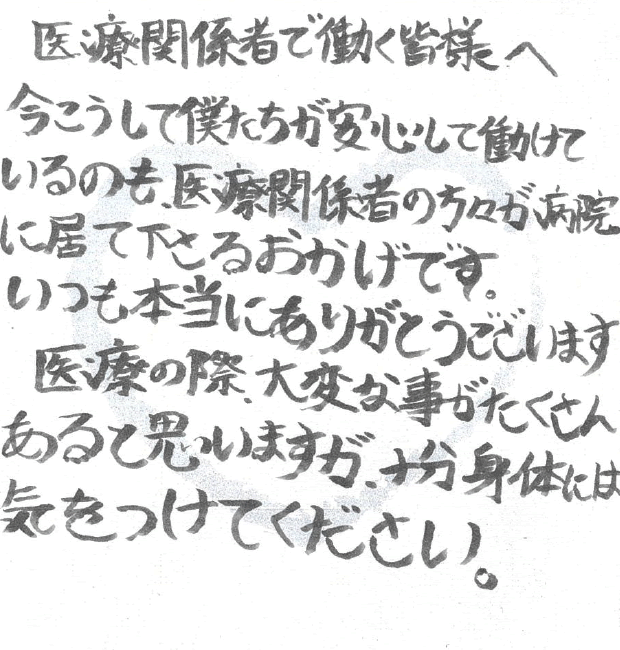 医療関係者で働く皆様へ
今こうして僕たちが安心して働けて
いるのも、医療関係者の方々が病院
に居て下さるおかげです。
いつも本当にありがとうございます
医療の際、大変な事がたくさん
あると思いますが、十分身体には
気をつけてください。